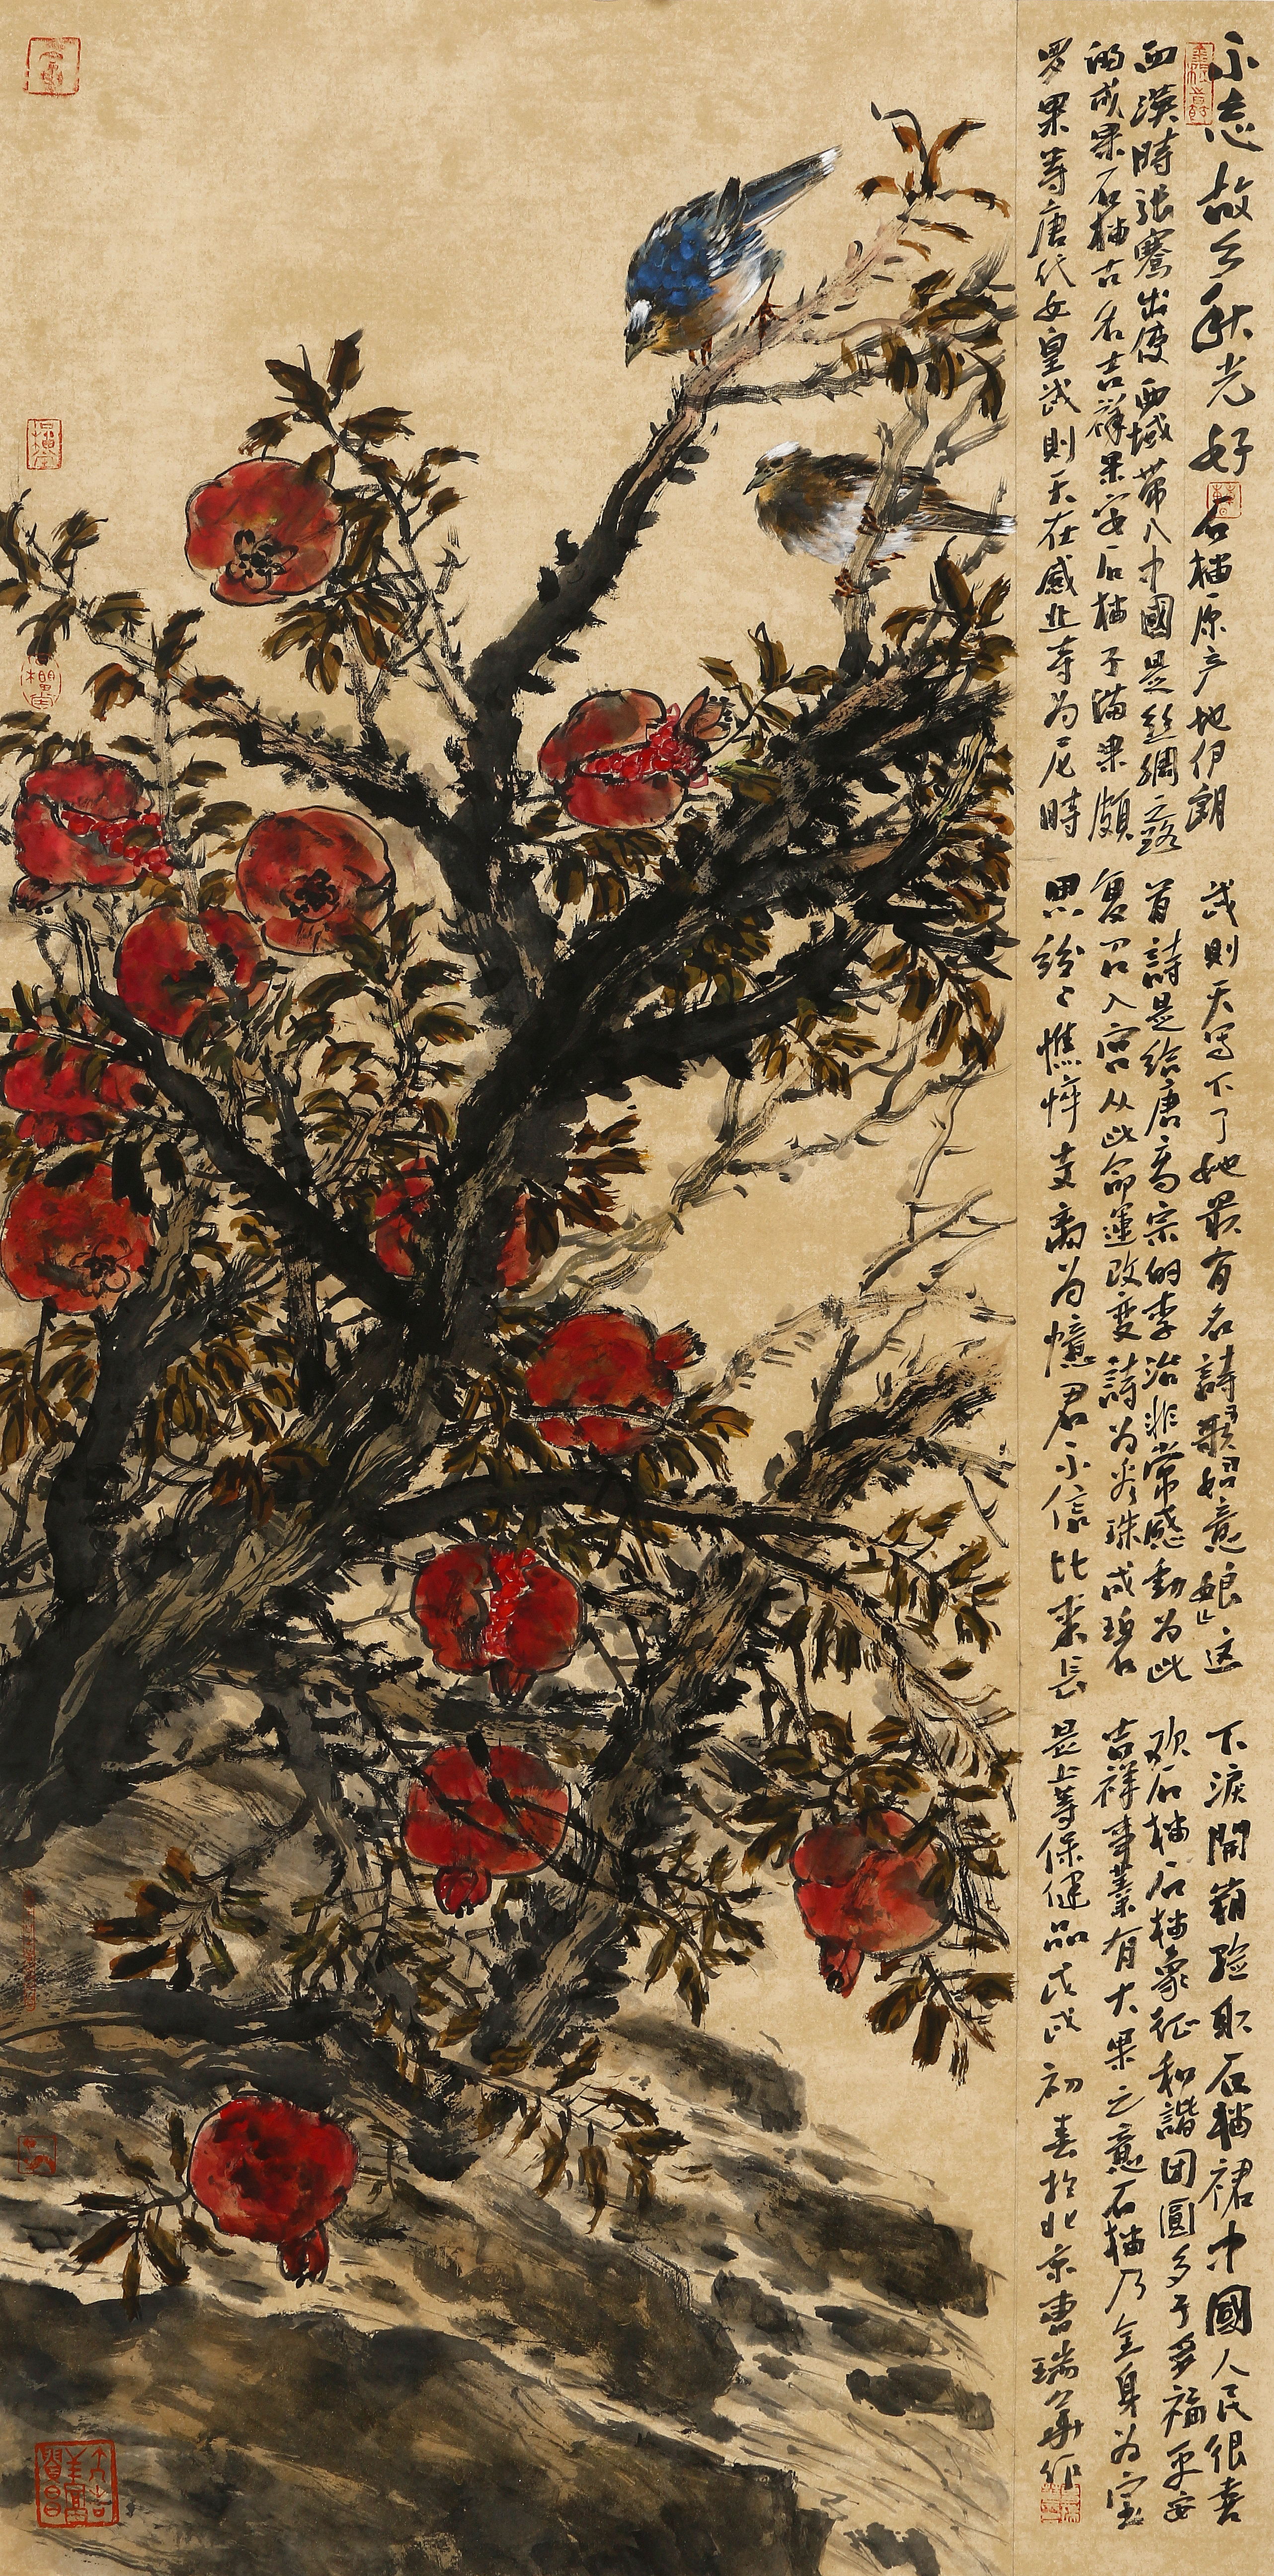 不忘故乡秋光好
石榴原产地伊朗
西漢時張騫出使西域帶入中國是丝綢之路
的成果石榴古名吉祥果安石榴子满果頗
罗果等唐代女皇武則天在感业寺为尼時
武則天写下了她最有名詩歌「如意娘」这
首詩是给唐高宗的李治非常感動为此
复召入宫从此命運改变詩为看珠成碧
思纷々憔悴支离为憶君不信比来长
下淚開箱验取石榴裙中國人民很喜
欢石榴石榴象征和諧团圓多子多福平安
吉祥事業有大果之意石榴乃全身为宝
是上等保健品戊戌初春於北京曹瑞华作